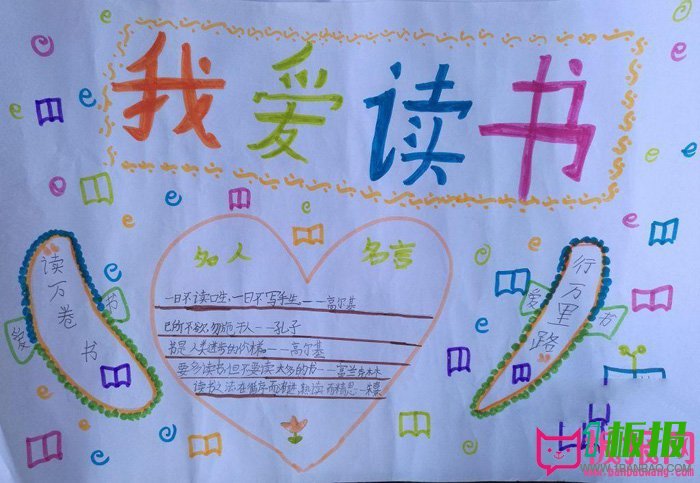 我爱读书
名人 名言
一日不读口生,一日不写手生。——高尔基
己所不欲,勿施于人——孔子
书是人类进步的阶梯——高尔基
要多读书,但不要读太多的书——富兰克林
读书之法在循序而渐进,熟读而精思——朱熹
读万卷书
爱
书
行万里路
爱
书
板报
WWW.1BANBAO.COM